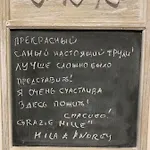 ПРЕКРАСНЫЙ
САМЫЙ НАСТОЯЩИЙ ТРУД!
ЛУЧШЕ СЛОЖНО БЫЛО
ПРЕДСТАВИТЬ!
Я ОЧЕНЬ СЧАСТЛИВА
ЗДЕСЬ ПОЖИТЬ!
СПАСИБО!
GRAZIE MILLE"
MILA & ANDREY